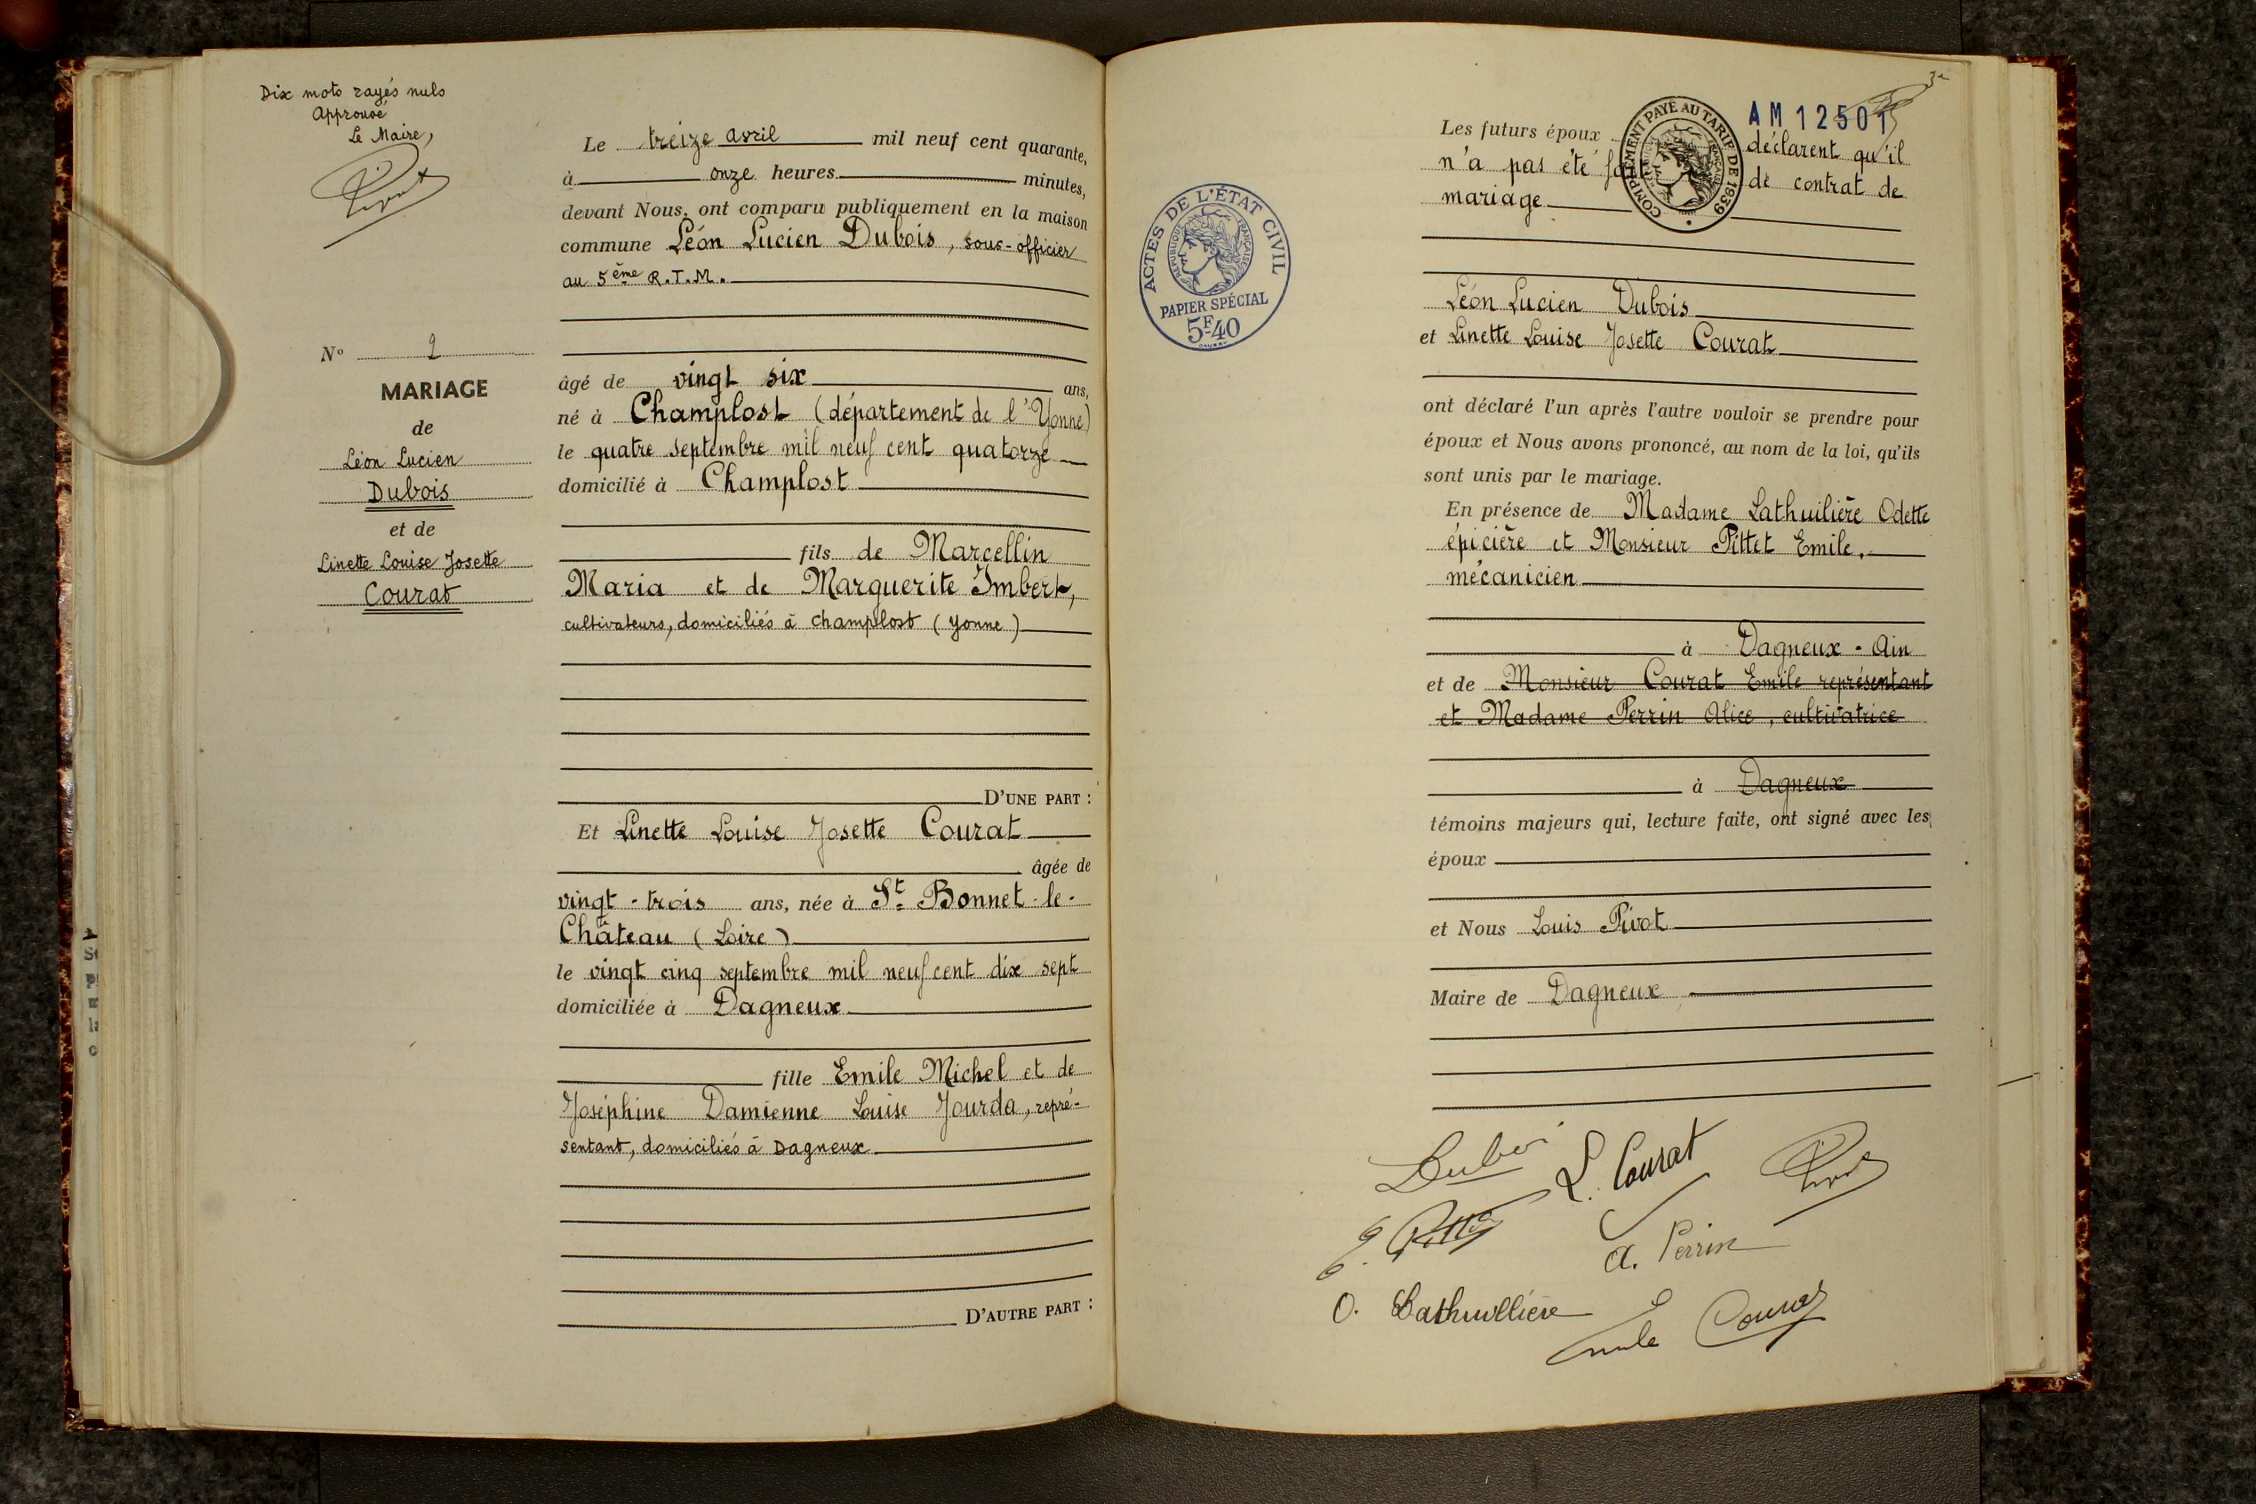 Dix mots rayés nuls
Approuvé
Le Maire,
Pivot
N° 2
MARIAGE
de
Léon Lucien
Dubois
et de
Linette Louise Josette
Courat
Le treize avril mil neuf cent quarante,
à onze heures minutes,
devant Nous, ont comparu publiquement en la maison
commune Léon Lucien Dubois, sous-officier
au 5ème R.T.M.
âgé de vingt six ans,
né à Champlost (département de l'Yonne)
le quatre septembre mil neuf cent quatorze
domicilié à Champlost
fils de Marcellin
Maria et de Marguerite Imbert,
cultivateurs, domiciliés à Champlost (Yonne)
D'UNE PART :
Et Linette Louise Josette Courat
âgée de
vingt-trois ans, née à St Bonnet-le-
Château (Loire)
le vingt cinq septembre mil neuf cent dix sept
domiciliée à Dagneux
fille Emile Michel et de
Joséphine Damienne Louise Jourda, repré-
sentant, domiciliés à Dagneux
D'AUTRE PART :
ACTES DE L'ÉTAT CIVIL
RÉPUBLIQUE FRANÇAISE
PAPIER SPÉCIAL
5F40
COMPLÉMENT PAYÉ AU TARIF DE 1939
AM 12501
Les futurs époux déclarent qu'il
n'a pas été de contrat de
mariage
Léon Lucien Dubois
et Linette Louise Josette Courat
ont déclaré l'un après l'autre vouloir se prendre pour
époux et Nous avons prononcé, au nom de la loi, qu'ils
sont unis par le mariage.
En présence de Madame Lathuilière Odette
épicière et Monsieur Pittet Emile,
mécanicien
à Dagneux - Ain
et de Monsieur Courat Emile représentant
et Madame Perrin Alice, cultivatrice
à Dagneux
témoins majeurs qui, lecture faite, ont signé avec les
époux
et Nous Louis Pivot
Maire de Dagneux
Dubois
L. Courat
Pivot
A. Perrin
O. Lathuillière
Emile Courat